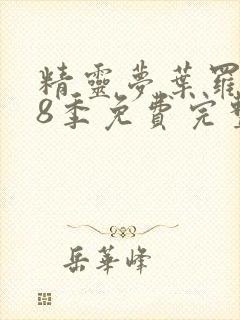 精靈夢葉羅
8季免費完整
岳華峰